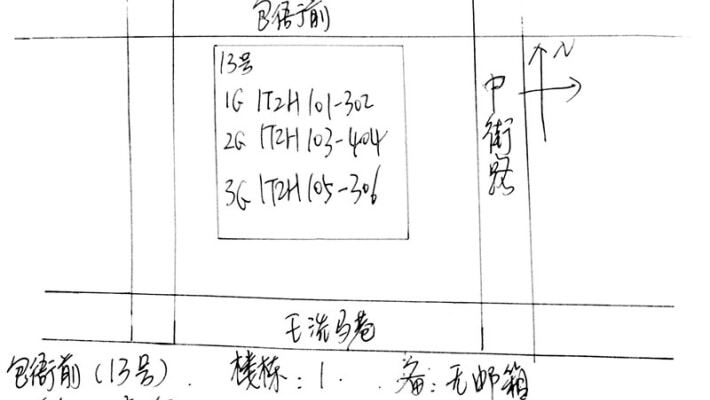 包衙前
N
13号
1G 1T2H 101-302
2G 1T2H 103-404
3G 1T2H 105-306
中街路
王洗马巷
包衙前(13号). 楼栋:1. 备:无邮箱